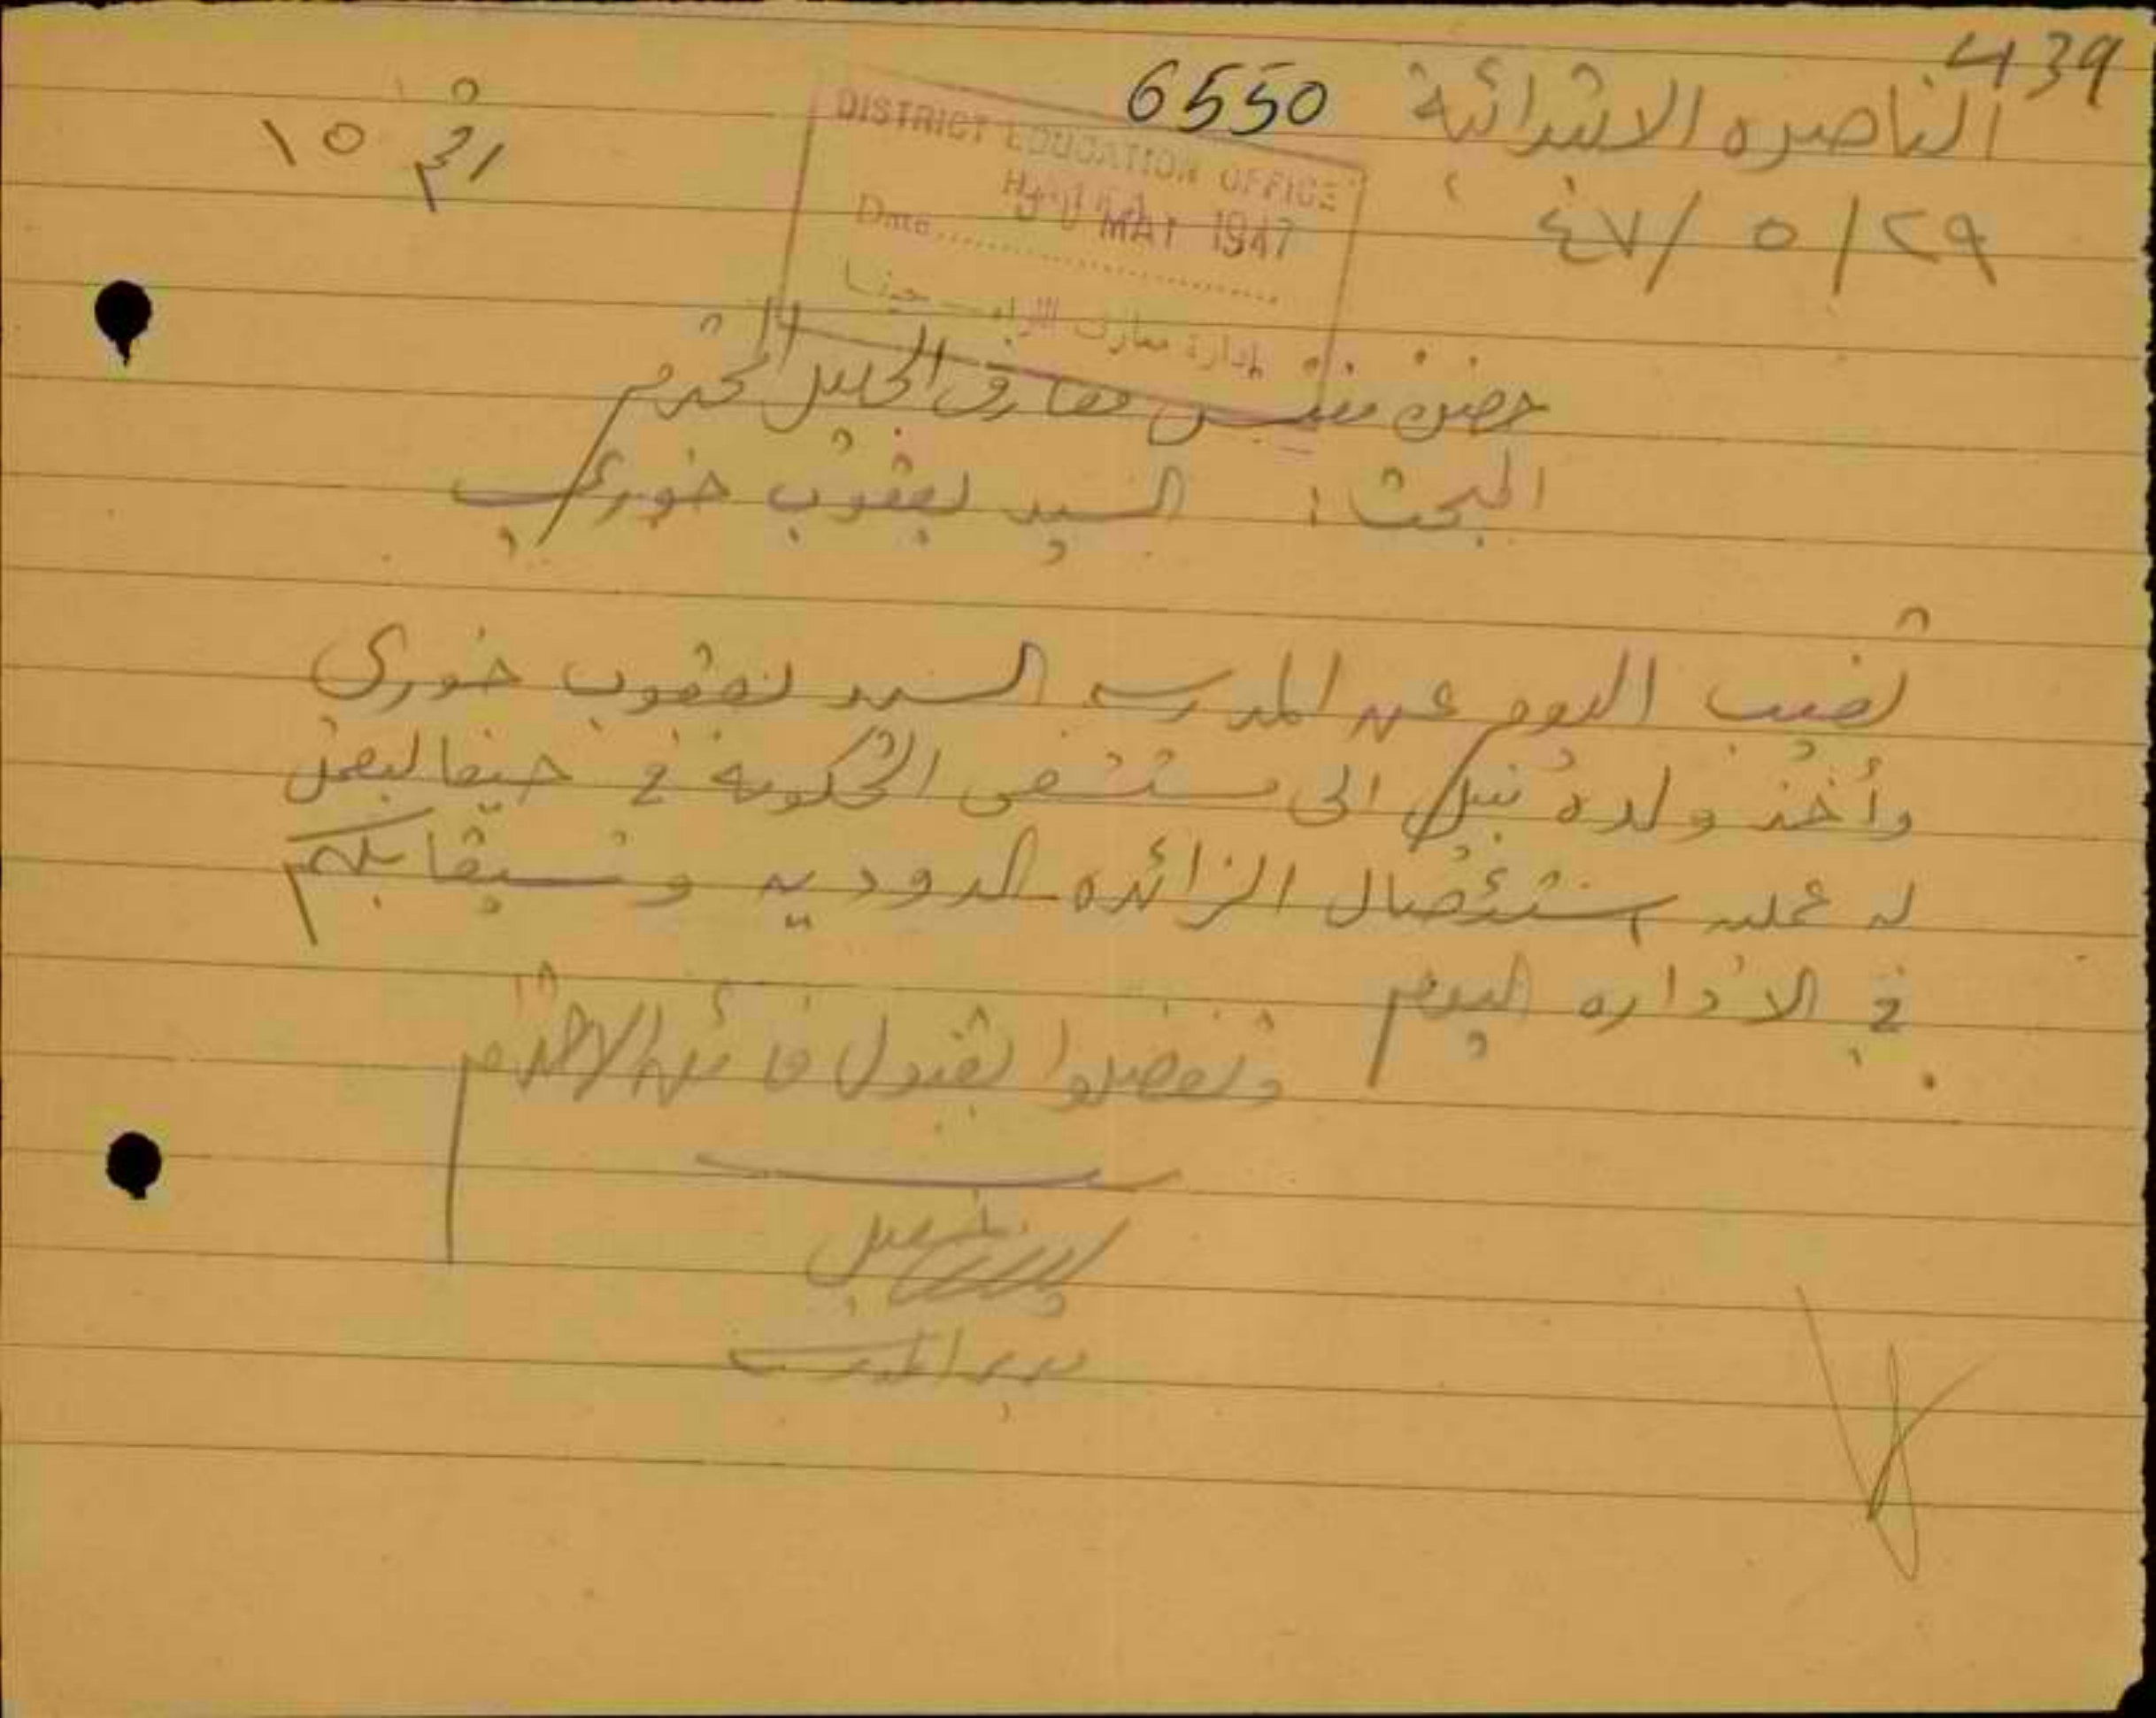 439
6550
الناصره الابتدائية
٢٩/ ٥ /٤٧
١٥
DISTRICT EDUCATION OFFICE
MAY 1947
Date
ادارة معارف اللواء حيفا
حضرة مفتش معارف الجليل المحترم
المبحث: السيد يعقوب خوري
تغيب اليوم عن المدرسه السيد يعقوب خوري
وأخذ ولده نبيل الى مستشفى الحكومة في حيفا ليعمل
له عمليه استئصال الزائده الدوديه وسيقابلكم
في الاداره اليوم
وتفضلوا بقبول فائق الاحترام
مدير المدرسة